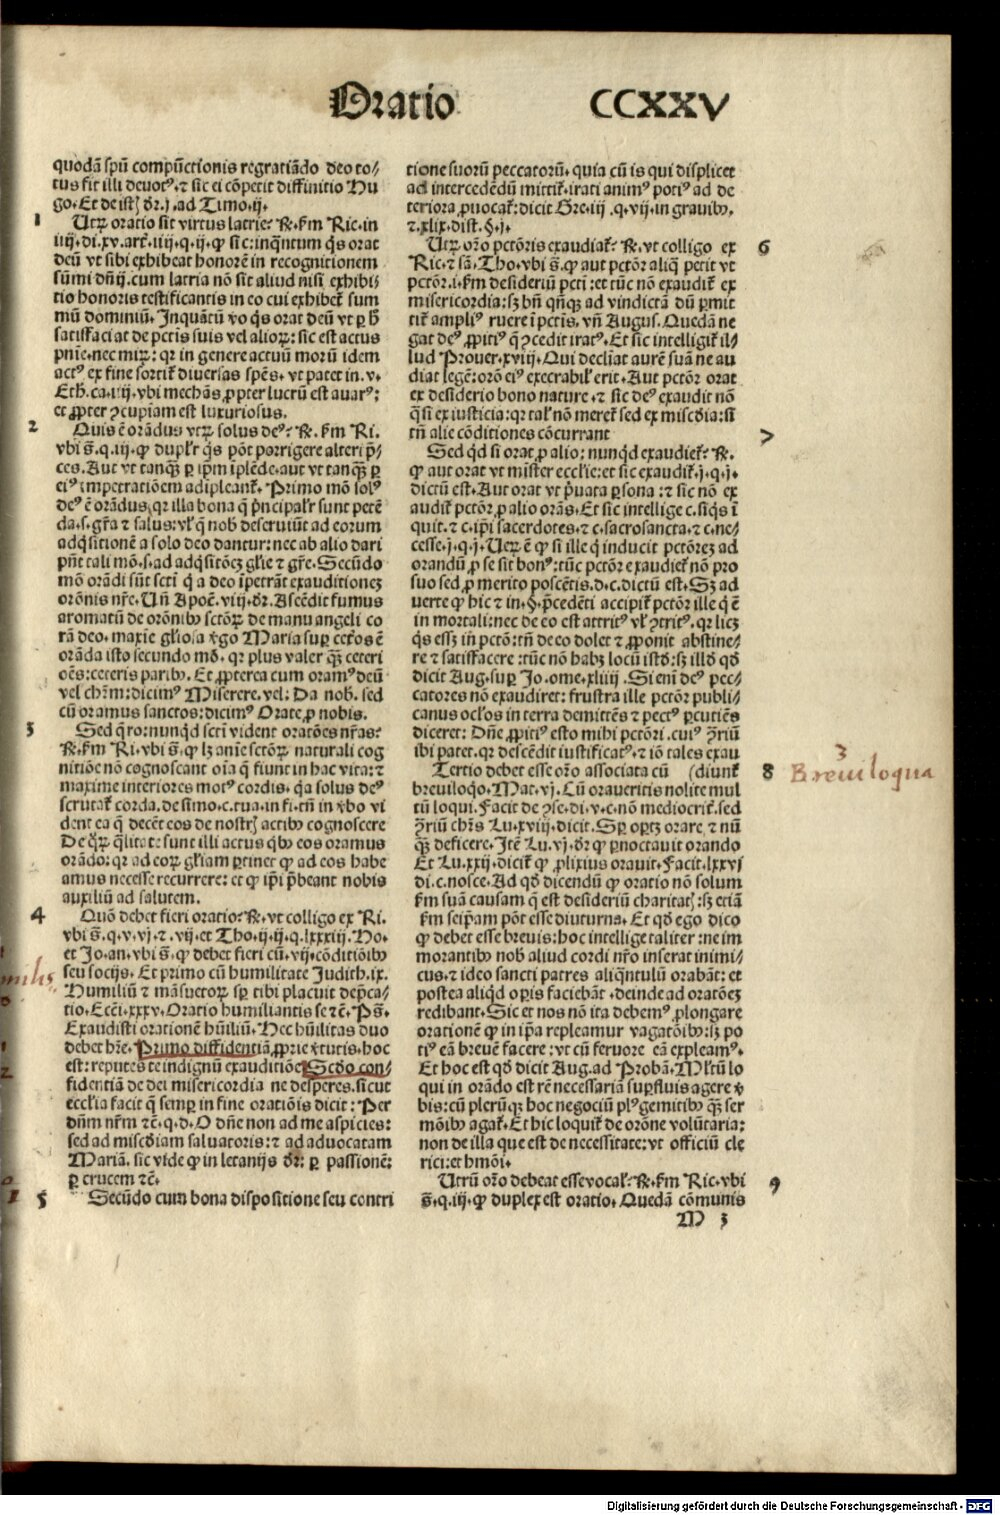 Oratio CCXXV
quodã spũ compũctionis regratiãdo deo to/
tus fit illi deuotꝰ. ⁊ sic ei cõpetit diffinitio Hu
go. Et de istꝭ dr̃. j. ad Timo. ij.
1 Utrꝫ oratio sit virtus latrie? R̃. s̃m Ric. in
iiij. di. xv. art̃. iiij. q. ij. ꝙ sic: inq̃ntum q̃s orat
deũ vt sibi exhibeat honorẽ in recognitionem
sũmi dñij. cum latria nõ sit aliud nisi exhibi/
tio honoris testificantis in eo cui exhibet̃ sum
mũ dominiũ. Inquãtũ ỹo q̃s orat deũ vt ꝑ h̃
satisfaciat de pctis suis vel alioꝝ: sic est actus
pnĩe. nec mirꝫ: qr in genere actuũ morũ idem
actꝰ ex fine sortit̃ diuersas sp̃es. vt patet in. v.
Eth. ca. iij. vbi mechãs ꝓpter lucrũ est auarꝰ:
et ꝓpter ꝯcupĩam est luxuriosus.
2 Quis ẽ orãdus vtrꝫ solus deꝰ? R̃. s̃m Ri.
vbi s̃. q. iij. ꝙ duplr̃ q̃s põt porrigere alteri p̃/
ces. Aut vt tanq̃ꝫ ꝑ ip̃m iplẽde. aut vt tanq̃ꝫ ꝑ
eiꝰ impetratiõem adipleant̃. Primo mõ solꝰ
deꝰ ẽ orãdus, qr illa bona q̃ p̃ncipalr̃ sunt petẽ
da. s. gr̃a ⁊ salus: vl̃ q̃ nob̃ deseruiũt ad eorum
adq̃sitionẽ a solo deo dantur: nec ab alio dari
pñt tali mõ. s. ad adq̃sitõeꝫ gl̃ie ⁊ gr̃e. Secũdo
mõ orãdi sũt sctĩ q̃ a deo ipetrãt exauditioneꝫ
orõnis nr̃e. Uñ Apoc̃. viij. dr̃. Ascẽdit fumus
aromatũ de orõnibꝰ sctõꝝ de manu angeli co
rã deo. maxĩe gl̃iosa ỹgo Maria suꝑ cet̃os ẽ
orãda isto secundo mõ. qr plus valet q̃ꝫ ceteri
oẽs: ceteris paribꝰ. Et ꝓpterea cum oramꝰ deũ
vel chr̃m: dicimꝰ Miserere. vel: Da nob̃. sed
cũ oramus sanctos: dicimꝰ Orate ꝓ nobis.
3 Sed q̃ro: nunq̃d scti vident oratões nr̃as?
R̃. s̃m Ri. vbi s̃. ꝙ lꝫ anĩe sctõꝝ naturali cog
nitiõe nõ cognoscant oĩa q̃ fiunt in hac vita: ⁊
maxime interiores motꝰ cordis. q̃a solus deꝰ
scrutat̃ corda. de simo. c. tua. in fi. tñ in ỹbo vi
dent ea q̃ decẽt eos de nostrꝭ actibꝰ cognoscere
De q̃ꝝ q̃litate sunt illi actus q̃bꝰ eos oramus
orãdo: qr ad eoꝝ gl̃iam ꝑtinet ꝙ ad eos habe
amus necesse recurrere: et ꝙ ip̃i p̃beant nobis
auxiliũ ad salutem.
4 Quõ debet fieri oratio? R̃. vt colligo ex Ri.
vbi s̃. q. v. vj. ⁊. vij. et Tho. ij. ij. q. lxxxiij. Ho.
et Jo. an. vbi s̃. ꝙ debet fieri cũ. vij. cõditiõibꝰ
seu socijs. Et primo cũ humilitate Judith. ix.
Humiliũ ⁊ mãsuetoꝝ sꝑ tibi placuit dep̃ca/
tio. Ecc̃i. xxxv. Oratio humiliantis se ⁊c̃. Ps̃.
Exaudisti orationẽ hũiliũ. Hec hũilitas duo
debet hr̃e. Primo diffidentiã ꝓprie ỹtutis. hoc
est: reputes te indignũ exauditiõe. Scdo con/
fidentiã de dei misericordia ne desperes. sicut
eccl̃ia facit q̃ semꝑ in fine oratiõis dicit: Per
dñm nr̃m ⁊c̃. q. d. O dñe non ad me aspicies:
sed ad miscd̃iam saluatoris: ⁊ ad aduocatam
Mariã. sic vide ꝙ in letanijs dr̃: ꝑ passionẽ:
ꝑ crucem ⁊c̃.
5 Secũdo cum bona dispositione seu contri
tione suorũ peccatorũ. quia cũ is qui displicet
ad intercedẽdũ mittit̃. irati animꝰ potiꝰ ad de
teriora ꝓuocat̃: dicit Gre. iij. q. vij. in grauibꝰ.
⁊. xlix. dist. §. j.
6 Utrꝫ orõ pctõris exaudiat̃? R̃. vt colligo ex
Ric. ⁊ sã. Tho. vbi s̃. ꝙ aut pctõr aliq̃ petit vt
pctõr. i. s̃m desideriũ pcti: et tũc nõ exaudit̃ ex
misericordia: sꝫ bñ qñqꝫ ad vindictã dũ ꝑmit
tit̃ ampliꝰ ruere i pctis. vñ Augus. Quedã ne
gat deꝰ ꝓpitiꝰ q̃ ꝯcedit iratꝰ. Et sic intelligit̃ il/
lud Prouer. xviij. Qui declĩat aurẽ suã ne au
diat legẽ: orõ eiꝰ execrabil̃ erit. Aut pctõr orat
ex desiderio bono nature. ⁊ sic deꝰ exaudit nõ
q̃si ex iusticia: qr tal̃ nõ meret̃ sed ex miscd̃ia: si
tñ alie cõditiones cõcurrant
7 Sed q̃d si orat ꝓ alio: nunq̃d exaudiet̃? R̃.
ꝙ aut orat vt mĩster eccl̃ie: et sic exaudit̃. j. q. j.
dictũ est. Aut orat vt p̃uata ꝑsona: ⁊ sic nõ ex
audit̃ pctõr ꝓ alio orãs. Et sic intellige c. siq̃s i
quit. ⁊ c. ip̃i sacerdotes. ⁊ c. sacrosancta. ⁊ c. ne/
cesse. j. q. j. Ueꝝ ẽ ꝙ si ille q̃ inducit pctõreꝫ ad
orandũ ꝓ se sit bonꝰ: tũc pctõr exaudiet̃ nõ pro
suo sed ꝓ merito poscẽtis. d. c. dictũ est. Sꝫ ad
uerte ꝙ hic ⁊ in. §. p̃cedẽti accipit̃ pctõr ille q̃ ẽ
in mortali: nec de eo est attritꝰ vl̃ ꝯtritꝰ. qr licꝫ
q̃s essꝫ in pctõ: tñ de eo dolet ⁊ ꝓponit abstine/
re ⁊ satisfacere: tũc nõ habꝫ locũ istd̃: sꝫ illd̃ qd̃
dicit Aug. suꝑ Jo. ome. xliiij. Si enĩ deꝰ pec/
catores nõ exaudiret: frustra ille pctõr publi/
canus ocl̃os in terra demittẽs ⁊ pectꝰ ꝑcutiẽs
diceret: Dñe ꝓpitiꝰ esto mihi pctõri. cuiꝰ ꝯ̃riũ
ibi patet. qr descẽdit iustificatꝰ. ⁊ iõ tales exau
8 Tertio debet esse orõ associata cũ (diunt̃
breuiloq̃o. Mat. vj. Cũ oraueritis nolite mul
tũ loqui. Facit de ꝯse. di. v. c. nõ mediocrit̃. sed
ꝯ̃riũ chr̃s Lu. xviij. dicit. Sꝑ oportꝫ orare, ⁊ nũ
q̃ꝫ deficere. Itẽ Lu. vj. dr̃ ꝙ ꝑnoctauit orando
Et Lu. xxij. dicit̃ ꝙ ꝓlixius orauit. Facit. lxxvj
di. c. nosce. Ad qd̃ dicendũ ꝙ oratio nõ solum
s̃m suã causam q̃ est desideriũ charitatꝭ: sꝫ etiã
s̃m seip̃am põt esse diuturna. Et qd̃ ego dico
ꝙ debet esse breuis: hoc intellige taliter: ne im
morantibꝰ nob̃ aliud cordi nr̃o inserat inimi/
cus. ⁊ ideo sancti patres aliq̃ntulũ orabãt: et
postea aliq̃d oꝑis faciebãt. deinde ad oratõeꝫ
redibant. Sic et nos nõ ita debemꝰ ꝓlongare
orationẽ ꝙ in ip̃a repleamur vagatõibꝰ: sꝫ po
tiꝰ eã breuẽ facere: vt cũ feruore eã expleamꝰ.
Et hoc est qd̃ dicit Aug. ad Probã. Ml̃tũ lo
qui in orãdo est rẽ necessariã suꝑfluis agere ỹ
bis: cũ plerũqꝫ hoc negociũ plꝰ gemitibꝰ q̃ꝫ ser
mõibꝰ agat̃. Et hic loquit̃ de orõne volũtaria:
non de illa que est de necessitate: vt officiũ cle
rici: et hmõi.
9 Utrũ orõ debeat esse vocal̃? R̃. s̃m Ric. vbi
s̃. q. iij. ꝙ duplex est oratio. Quedã cõmunis
M 3
3
Breuiloqua
Digitalisierung gefördert durch die Deutsche Forschungsgemeinschaft - DFG